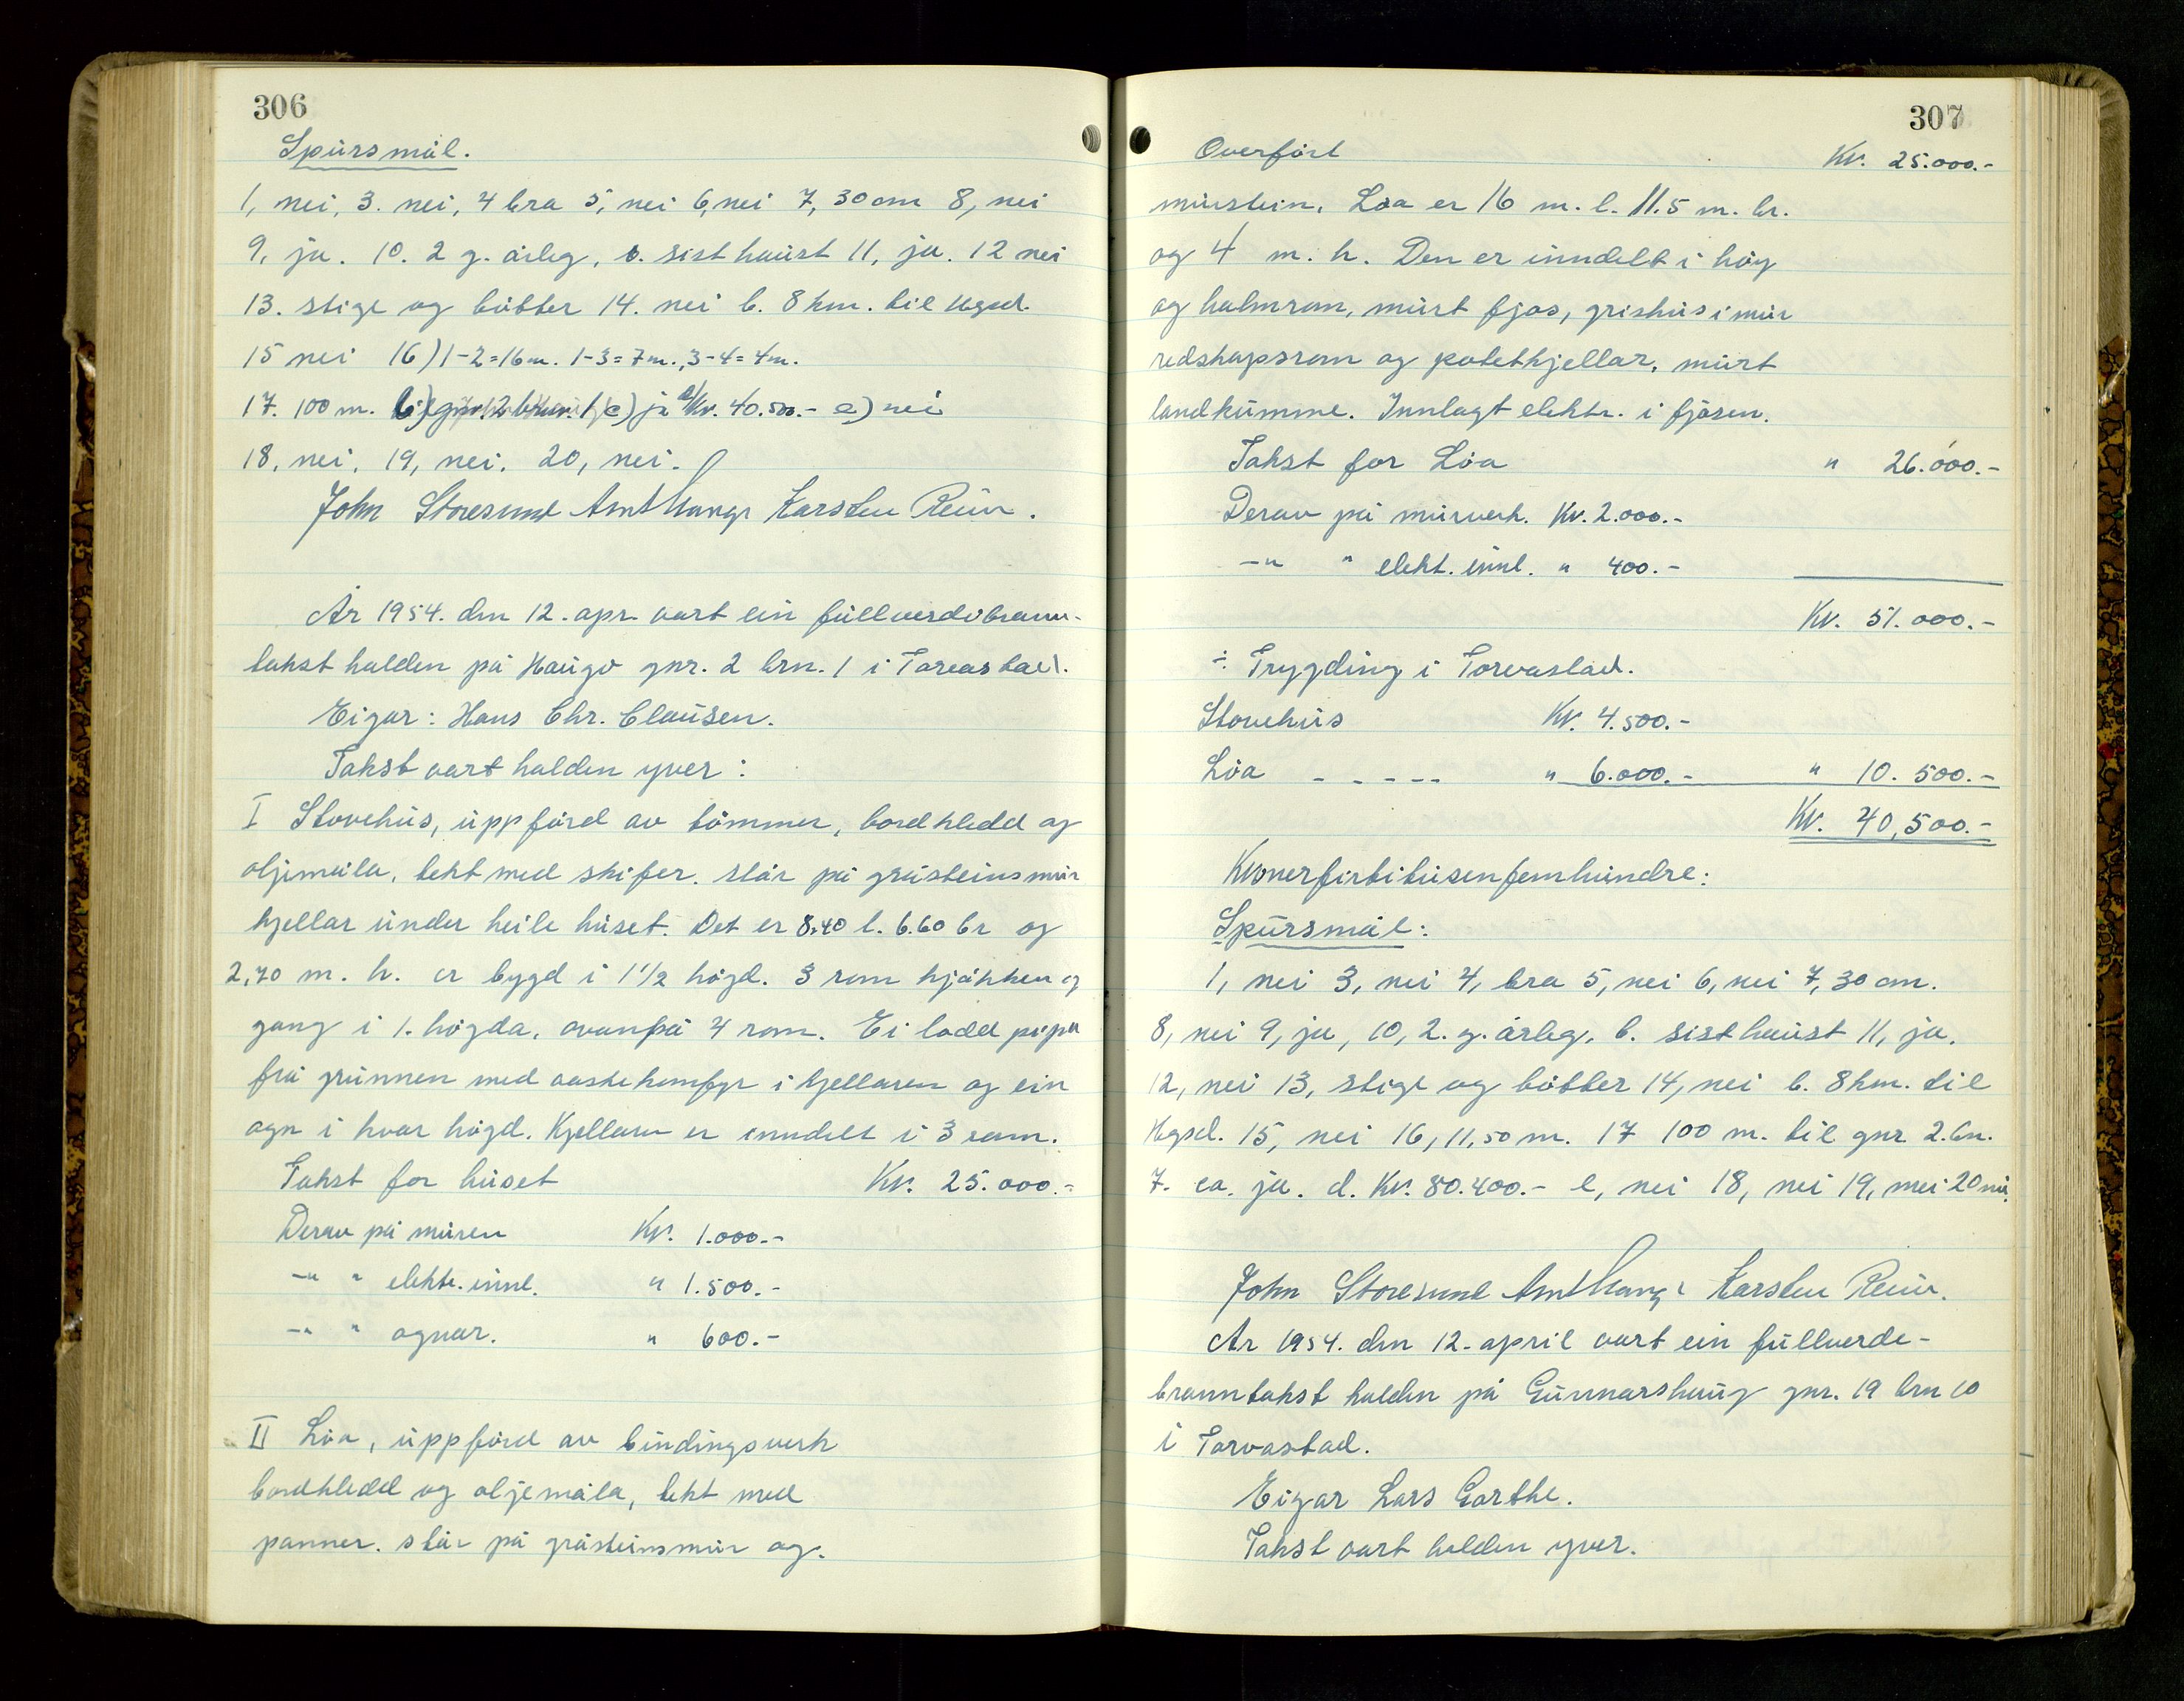 306
Spursmål.
1, nei, 3. nei, 4 bra 5, nei 6, nei 7, 30 cm 8, nei
9, ja. 10. 2 g. årleg, b. sist haust 11, ja. 12 nei
13. stige og bötter 14. nei b. 8 km. til Hgsd.
15 nei 16) 1-2=16m. 1-3=7m., 3-4=4m.
17. 100 m. b) gnr. 2 brnr. 1 c) ja d/Kr. 40.500.- e) nei
18, nei, 19, nei. 20, nei.
John Storesund Karsten
År 1954. den 12. apr. vart ein fullverdebrann-
takst halden på Haugo gnr. 2 brn. 1 i Torvastad.
Eigar: Hans Chr. Clausen.
Takst vart halden yver:
I Stovehus, uppförd av tömmer, bordkledd og
oljemåla, tekt med skifer. står på gråsteinsmur
kjellar under heile huset. Det er 8.40 l. 6.60 br og
2,70 m. h. er bygd i 1 1/2 högd. 3 rom kjökken og
gang i 1. högda, ovanpå 4 rom. Ei lodd pipa
frå grunnen med vaskekomfyr i kjellaren og ein
ogn i hvar högd. Kjellaren er inndelt i 3 rom.
Takst for huset Kr. 25.000.-
Derav på muren Kr. 1.000.-
-" " elektr. innl. " 1.500.-
-" " ognar. " 600.-
II Löa, uppförd av bindingsverk
bordkledd og oljemåla, tekt med
panner. står på gråsteinsmur og.
307
Overfört Kr. 25.000.-
murstein. Löa er 16 m. l. 11.5 m. br.
og 4 m. h. Den er inndelt i höy
og halmrom, murt fjos, grishus i mur
redskapsrom og potetkjellar, murt
landkumme. Innlagt elektr. i fjösen.
Takst for Löa " 26.000.-
Derav på murverk. Kr. 2.000.-
-" " elekt. innl. " 400.-
Kr. 51.000.-
÷ Trygding i Torvastad.
Stovehus Kr. 4.500.-
Löa - - - - - " 6.000.- " 10.500.-
Kr. 40,500.-
Kronerfirtitusenfemhundre:
Spursmål:
1, nei 3, nei 4, bra 5, nei 6, nei 7, 30 cm.
8, nei 9, ja, 10, 2. g. årleg, b. sist haust 11, ja.
12, nei 13, stige og bötter 14, nei b. 8 km. til
Hgsd. 15, nei 16, 11,50 m. 17 100 m. til gnr 2. bn.
7. ca. ja. d. Kr. 80.400.- e, nei 18, nei 19, nei 20 nei.
John Storesund Karsten
År 1954. den 12. april vart ein fullverde-
branntakst halden på Gunnarshaug gnr. 19 brn 10
i Torvastad.
Eigar Lars Garthe.
Takst vart halden yver.